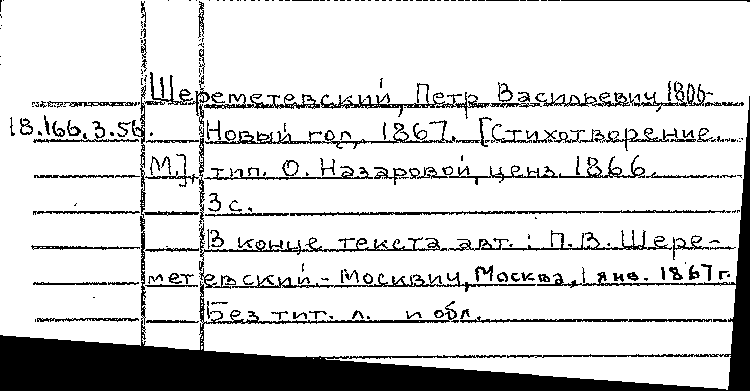 Шереметевский, Петр Васильевич, 1806-
18.166.3.56. Новый год, 1867. [Стихотворение.
М.], тип. О. Назаровой, ценз. 1866.
3 с.
В конце текста авт.: П.В. Шере-
метевский.- Москвич, Москва, 1 янв. 1867 г.
Без тит. л. и обл.